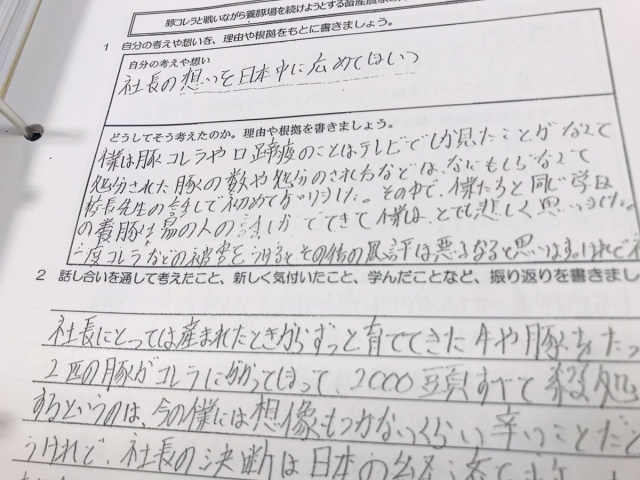 豚コレラと戦いながら養豚場を続けようとする畜産農家の
1 自分の考えや想いを、理由や根拠をもとに書きましょう。
自分の考えや想い
社長の想いを日本中に広めてほしい
どうしてそう考えたのか。理由や根拠を書きましょう。
僕は豚コレラや口蹄疫のことはテレビでしか見たことがなくて
処分された豚の数や処分のされ方などは、なにもしらなくて
校長先生の話して初めて知りました。その中で、僕たちと同じ学区
の養豚場の人の話しがでてきて僕は、とても悲しく思いました。
一度コレラなどの被害をうけると、その後の風評は悪くなると思いますけれど
2 話し合いを通して考えたこと、新しく気付いたこと、学んだことなど、振り返りを書きまし
社長にとっては産まれたときからずっと育ててきた牛や豚
2匹の豚がコレラにかかってしまって、2000頭すべて殺処
するというのは、今の僕には想像もつかないくらい辛いことだと
うけれど、社長の決断は日本の経済